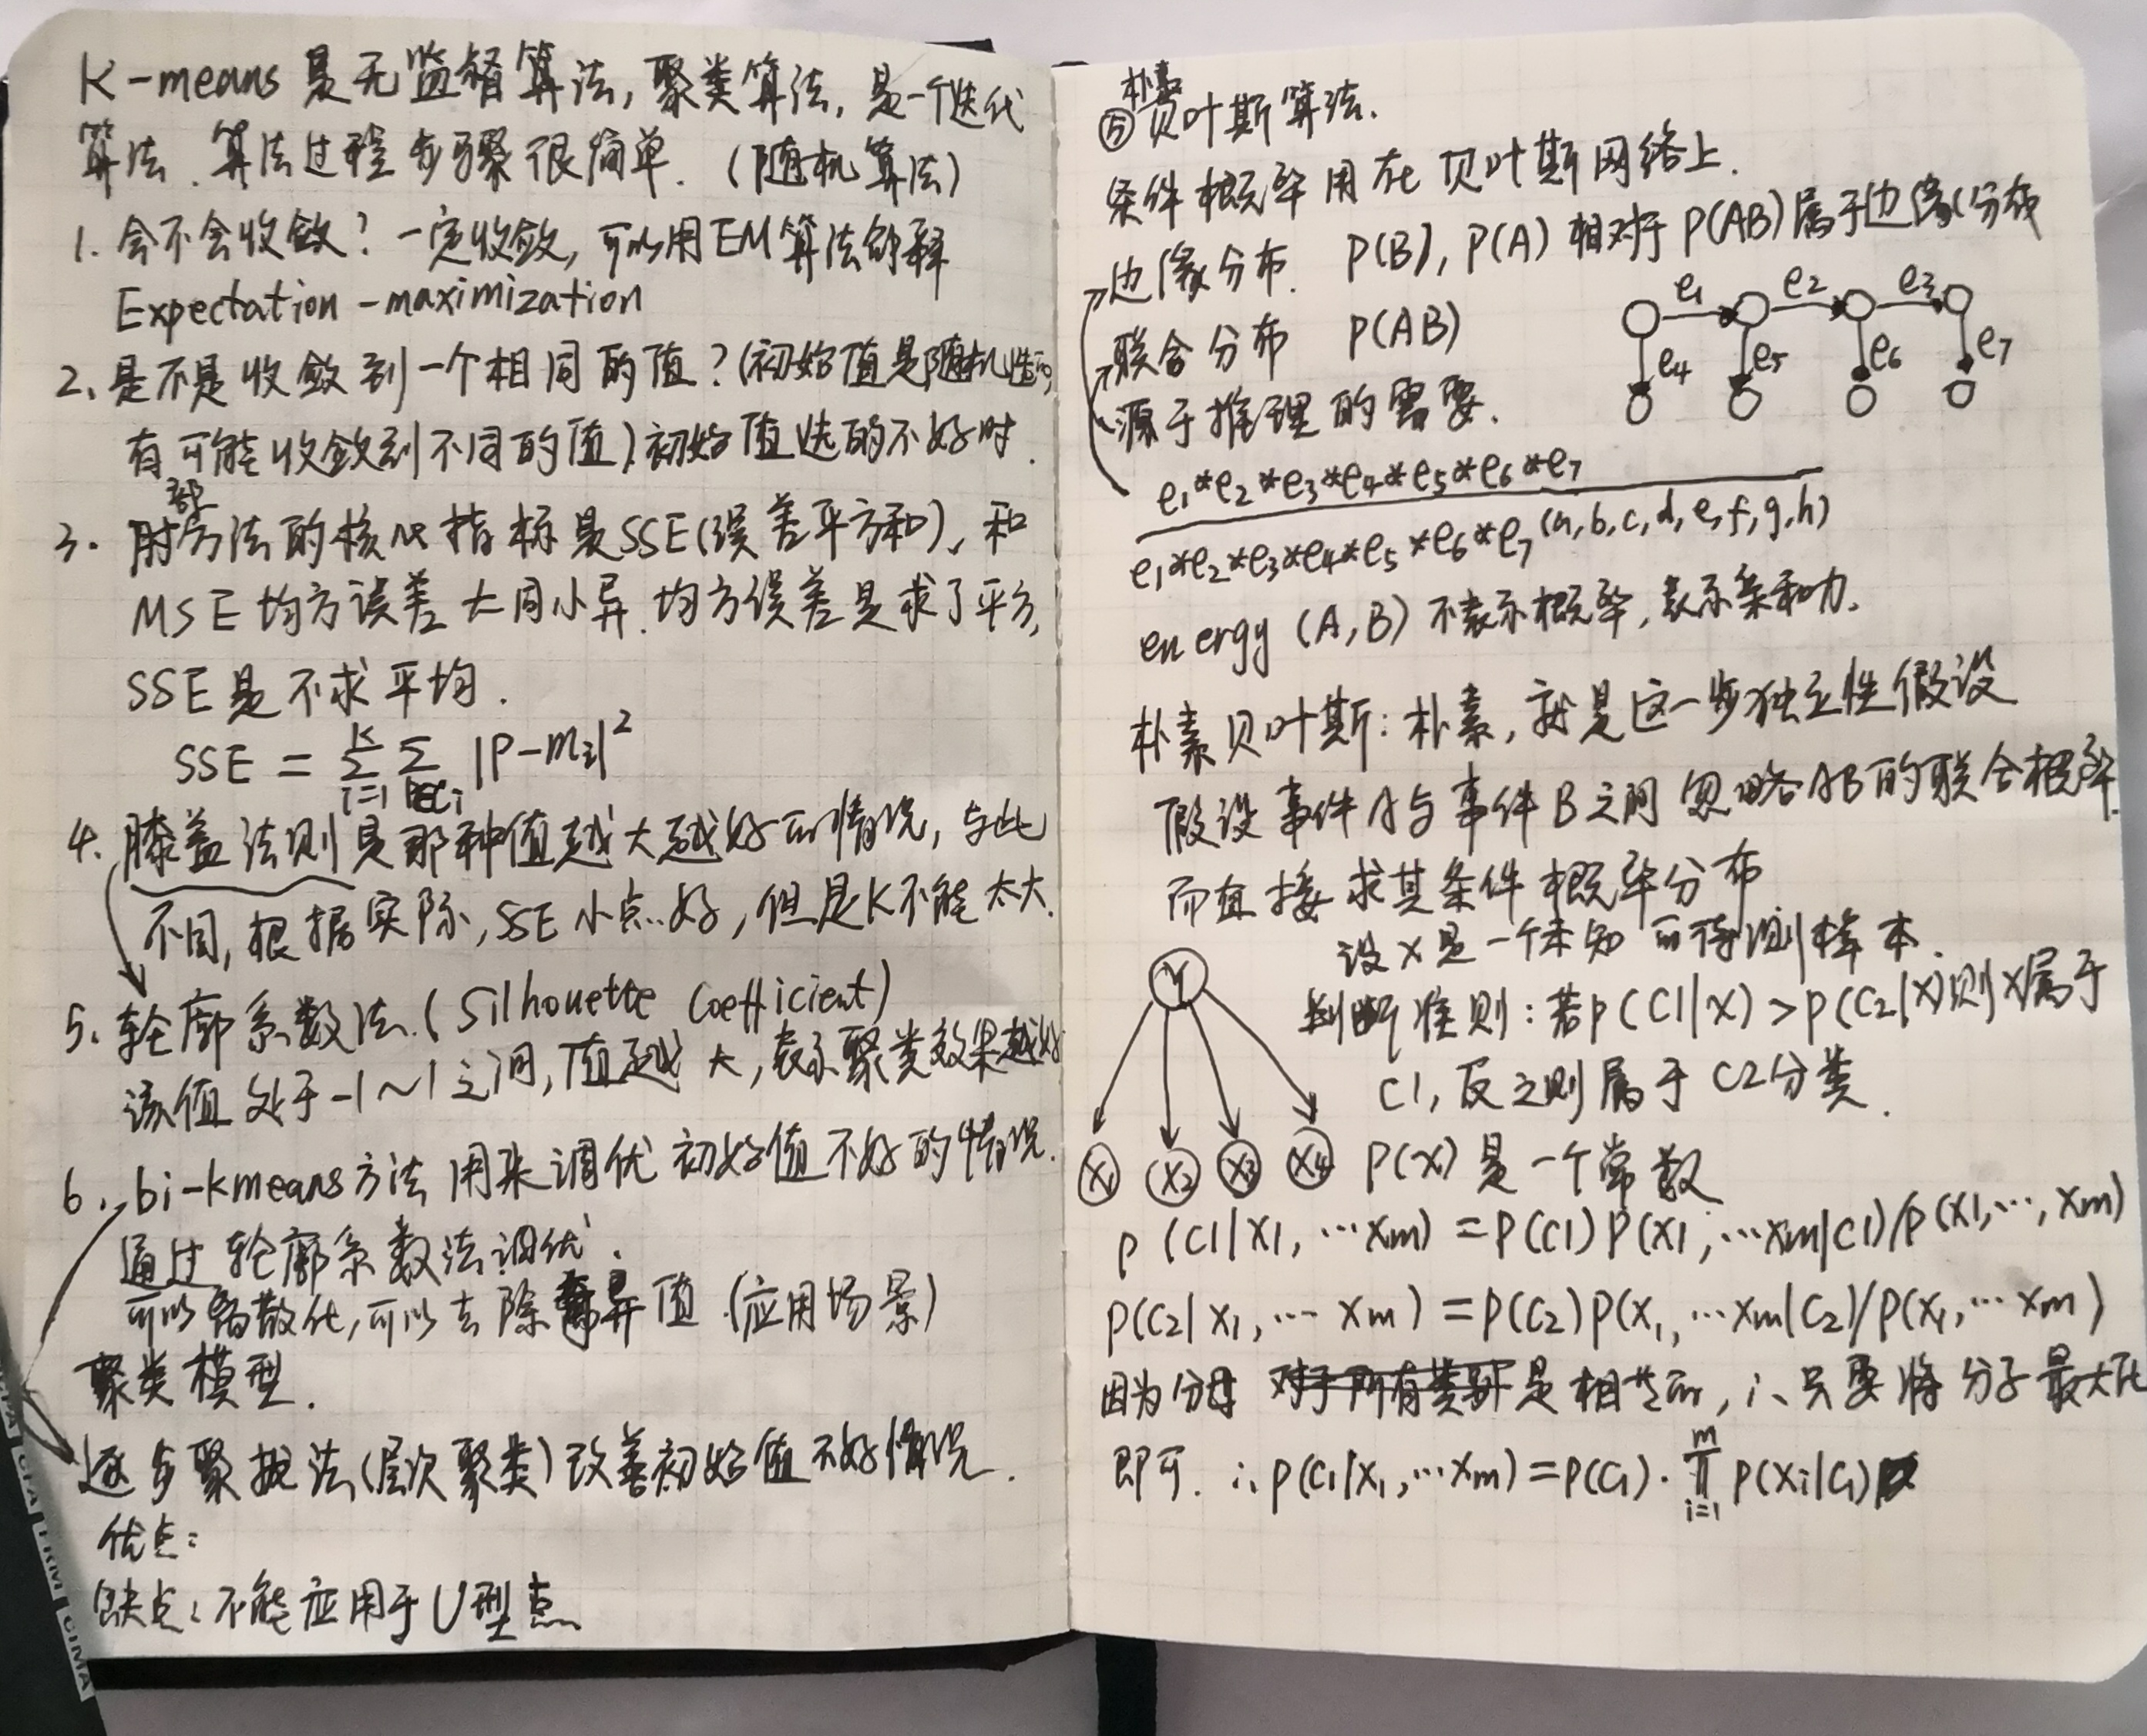 K-means 是无监督算法,聚类算法,是一个迭代
算法.算法过程步骤很简单.(随机算法)
1. 会不会收敛?一定收敛,可以用EM算法解释
Expectation-maximization
2. 是不是收敛到一个相同的值?(初始值是随机性的,
有可能收敛到不同的值)初始值选的不好时.
部
3. 肘方法的核心指标是SSE(误差平方和),和
MSE均方误差大同小异.均方误差是求了平方,
SSE是不求平均.
SSE = Σ_{i=1}^{K} Σ_{p∈Ci} |P-mi|²
4. 膝盖法则是那种值越大越好的情况,与此
不同,根据实际,SSE小点好,但是K不能太大.
5. 轮廓系数法.(Silhouette Coefficient)
该值处于-1~1之间,值越大,表示聚类效果越好
6. bi-kmeans方法用来调优初始值不好的情况.
通过轮廓系数法调优.
可以离散化,可以去除离异值(应用场景)
聚类模型.
逐步聚拢法(层次聚类)改善初始值不好情况.
优点:
缺点:不能应用于U型点
CFA FRM CIMA
朴素
⑤贝叶斯算法.
条件概率用在贝叶斯网络上.
边缘分布. P(B), P(A)相对于P(AB)属于边缘分布
联合分布 P(AB)
源于推理的需要.
e1 e2 e3
e4 e5 e6 e7
e1*e2*e3*e4*e5*e6*e7
e1*e2*e3*e4*e5*e6*e7(a,b,c,d,e,f,g,h)
energy (A,B)不表示概率,表示亲和力.
朴素贝叶斯:朴素,就是这一步独立性假设
假设事件A与事件B之间忽略AB的联合概率
而直接求其条件概率分布
设X是一个未知的待测样本.
Y
判断准则:若p(C1|X)>p(C2|X)则X属于
C1,反之则属于C2分类.
X1 X2 X3 X4 P(X)是一个常数
P(C1|X1,…Xm)=P(C1)P(X1,…Xm|C1)/P(X1,…,Xm)
P(C2|X1,…Xm)=P(C2)P(X1,…Xm|C2)/P(X1,…Xm)
因为分母对于所有类别是相芒的,∴只要将分子最大化
即可. ∴P(C1|X1,…Xm)=P(C1)·∏_{i=1}^{m} P(Xi|C1)